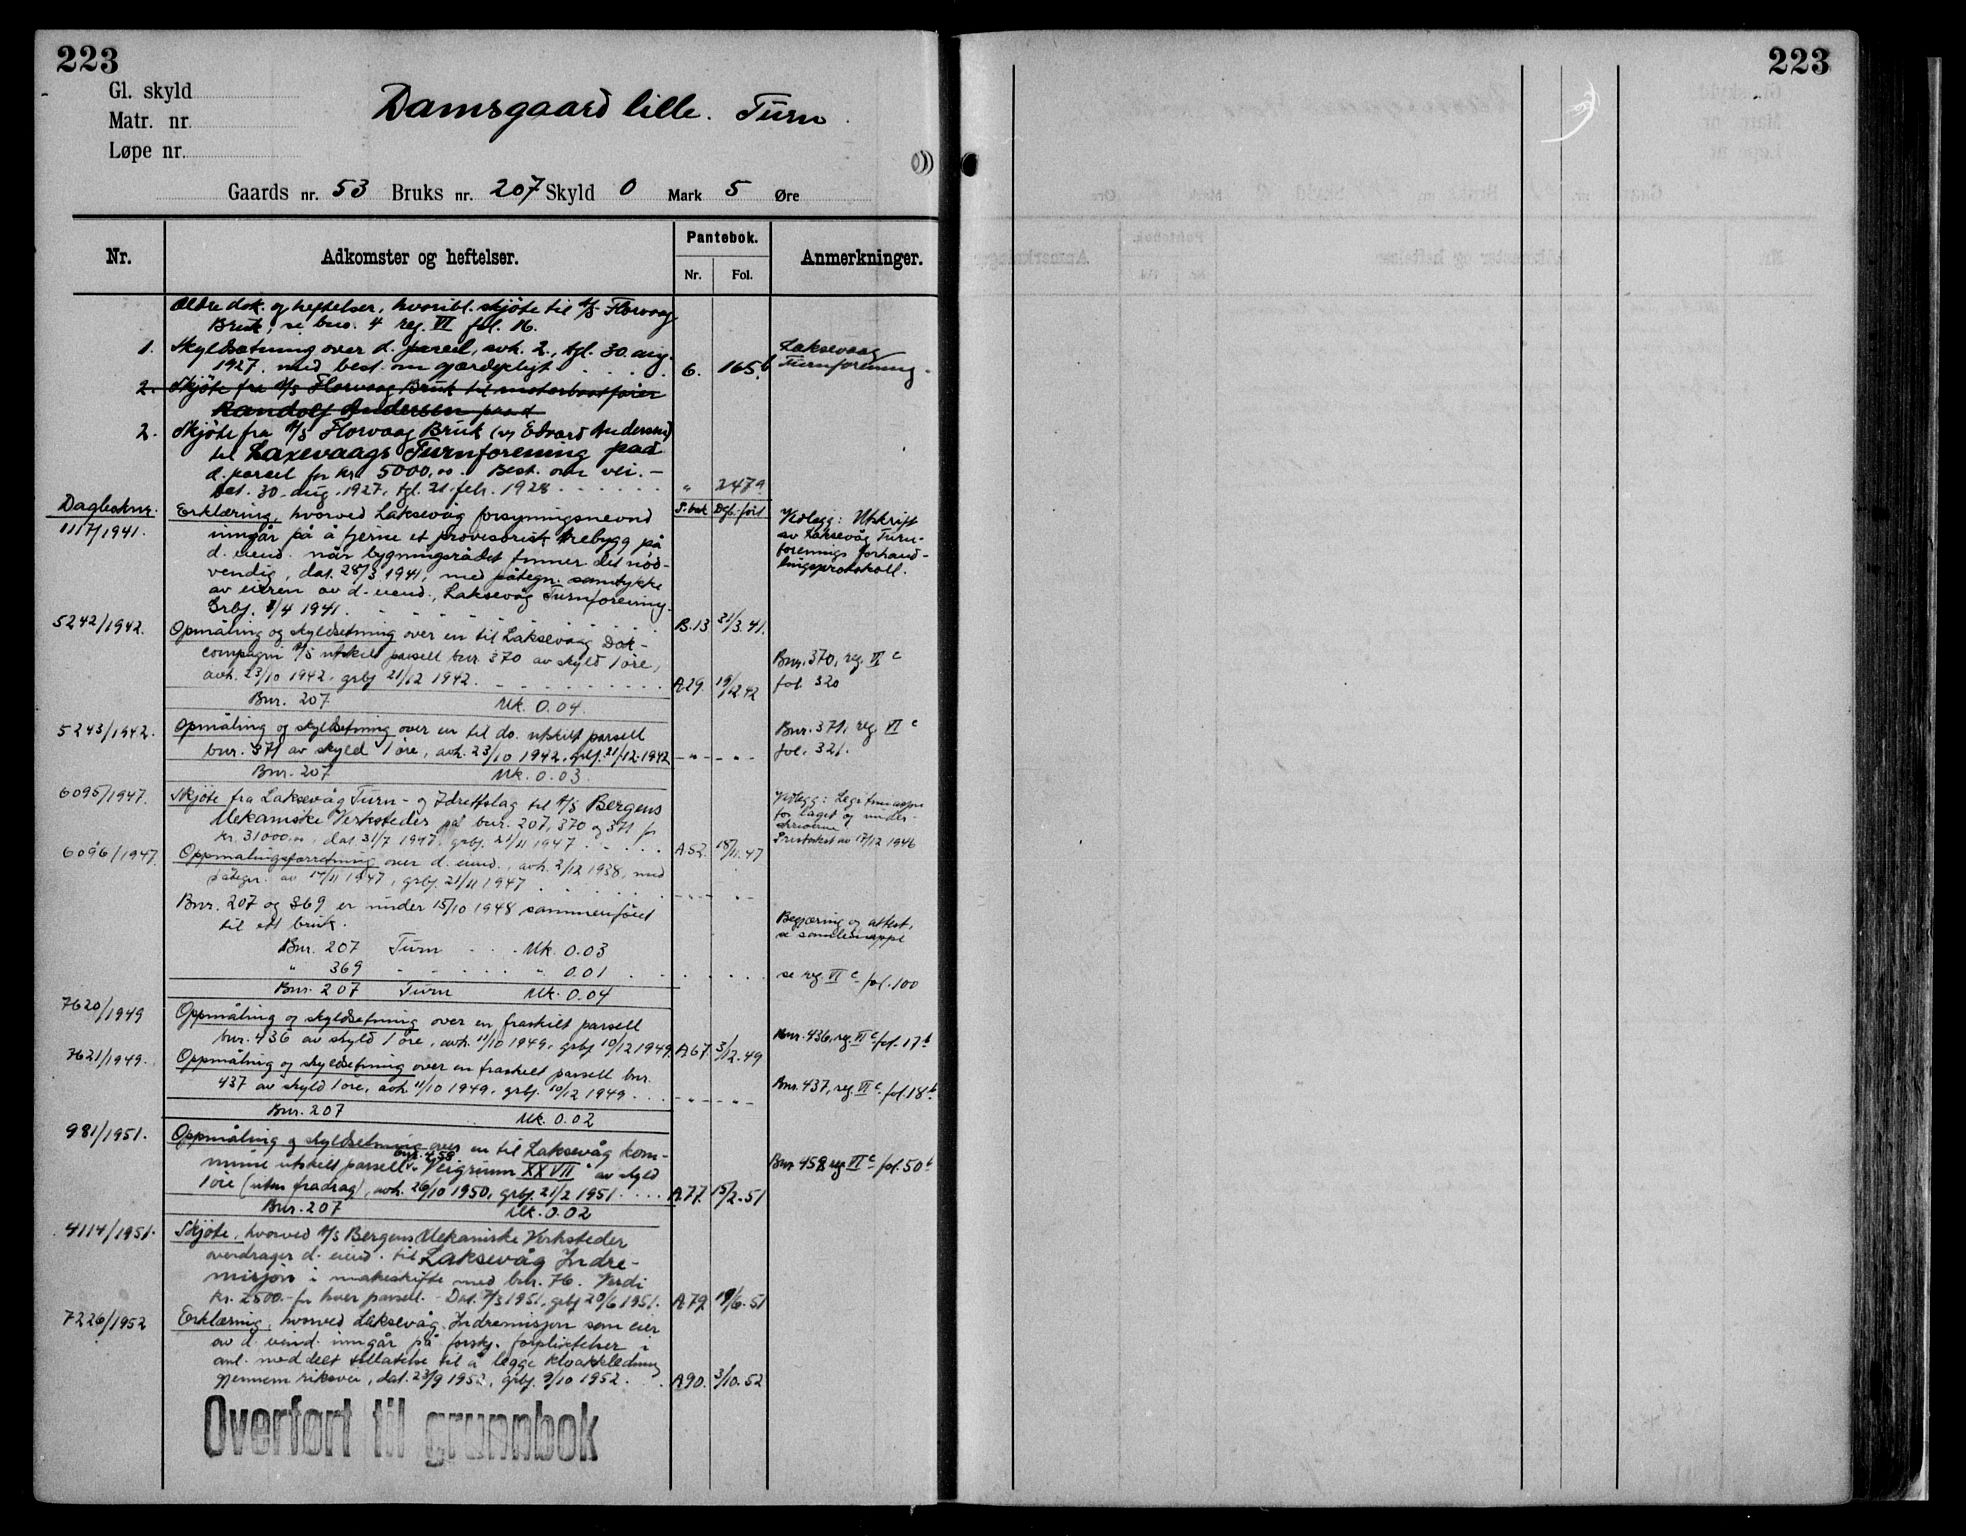 223
223
Gl. skyld
Matr. nr.
Løpe nr.
Damsgaard lille. Turn.
Gaards nr. 53 Bruks nr. 207 Skyld 0 Mark 5 Øre
Nr. Adkomster og heftelser. Pantebok. Anmerkninger.
Nr. Fol.
Ældre dok. og heftelser, hvoribl. skjøte til A/S Florvaag
Bruk, se bno. 4 reg. VI fol. 16.
1. Skyldsetning over d. parcel, avh. 2., tgl. 30. aug.
1927, med best. om gjærdepligt 6. 165b
Laksevaag
Turnforening.
2. Skjøte fra A/S Florvaag Bruk til motorbaatfører
Randolf Andersen paa d
2. Skjøte fra A/S Florvaag Bruk (v/ Edvard Andersen)
til Laxevaags Turnforening paa
d. parcel for kr. 5000,00. Best. om vei. –
Dat. 30. aug. 1927, tgl. 21. febr. 1928 " 247a
Dagboknr. P.bok Dgb.ført
1117/1941. Erklæring, hvorved Laksevåg forsyningsnevnd
inngår på å fjerne et provisorisk trebygg på
d. eiend. når bygningsrådet finner det nød-
vendig, dat. 28/3 1941, med påtegn. samtykke
av eieren av d. eiend., Laksevåg Turnforening.
Grbf. 8/4 1941. B.13 31/3.41.
Vedlegg: Utskrift
av Laksevåg Turn-
forenings forhand-
lingsprotokoll.
5242/1942. Opmåling og skyldsetning over en til Laksevaag Dok-
compagni A/S utskilt parsell bnr. 370 av skyld 1 øre,
avh. 23/10 1942, grbf 21/12 1942. A29. 19/12.42
Bnr. 370, reg. VI c
fol. 320
Bnr. 207 Mk. 0.04.
5243/1942. Opmåling og skyldsetning over en til do. utskilt parsell
bnr. 371 av skyld 1 øre, avh. 23/10 1942, grbf. 21/12.1942
Bnr. 371, reg. VI c
fol. 321.
Bnr. 207 Mk. 0.03.
6095/1947. Skjøte fra Laksevåg Turn- og Idrettslag til A/S Bergens
Mekaniske Verksteder på bnr. 207, 370 og 371 for
kr. 31000,00, dat 31/7 1947, grbf. 21/11 1947 A52. 18/11.47
for laget og under-
Pristakst av 17/12 1946
6096/1947. Oppmålingsforretning over d. eiend., avh. 2/12 1938, med
påtegn. av 14/11 1947, grbf. 21/11 1947
Bnr. 207 og 369 er under 15/10 1948 sammenføiet
til ett bruk.
Begjæring og attest,
se samlemappe
Bnr. 207 Turn Mk. 0.03
" 369 " 0.01
se reg. VI c fol. 100
Bnr. 207 Turn Mk. 0.04
7620/1949 Oppmåling og skyldsetning over en fraskilt parsell
bnr. 436 av skyld 1 øre, avh. 11/10 1949, grbf 10/12 1949. A67. 3/12.49
Bnr. 436, reg. VI c fol. 17b
7621/1949. Oppmåling og skyldsetning over en fraskilt parsell bnr.
437 av skyld 1 øre, avh 11/10 1949, grbf. 10/12 1949.
Bnr. 437, reg. VI c. fol. 18b.
Bnr. 207 Mk. 0.02
981/1951. Oppmåling og skyldsetning over en til Laksevåg kom-
mune utskilt parsell bnr. 458 "Veigrunn XXVII" av skyld
1 øre (uten fradrag), avh. 26/10 1950, grbf. 21/2 1951 A77. 15/2.51
Bnr. 458 reg VI c fol. 50b
Bnr. 207 Mk. 0.02
4114/1951. Skjøte, hvorved A/S Bergens Mekaniske Verksteder
overdrager d. eiend. til Laksevåg Indre-
misjon i makeskifte med bnr. 76. Verdi
kr. 2500.- for hver parsell. - Dat. 7/3 1951, grbf 20/6 1951. A79. 19/6.51
7226/1952 Erklæring, hvorved Laksevåg Indremisjon som eier
av d. eiend. inngår på forskj. forpliktelser i
anl. meddelt tillatelse til å legge kloakkledning
gjennem riksvei, dat. 23/9 1952, grbf. 9/10 1952. A90. 3/10.52
Overført til grunnbok